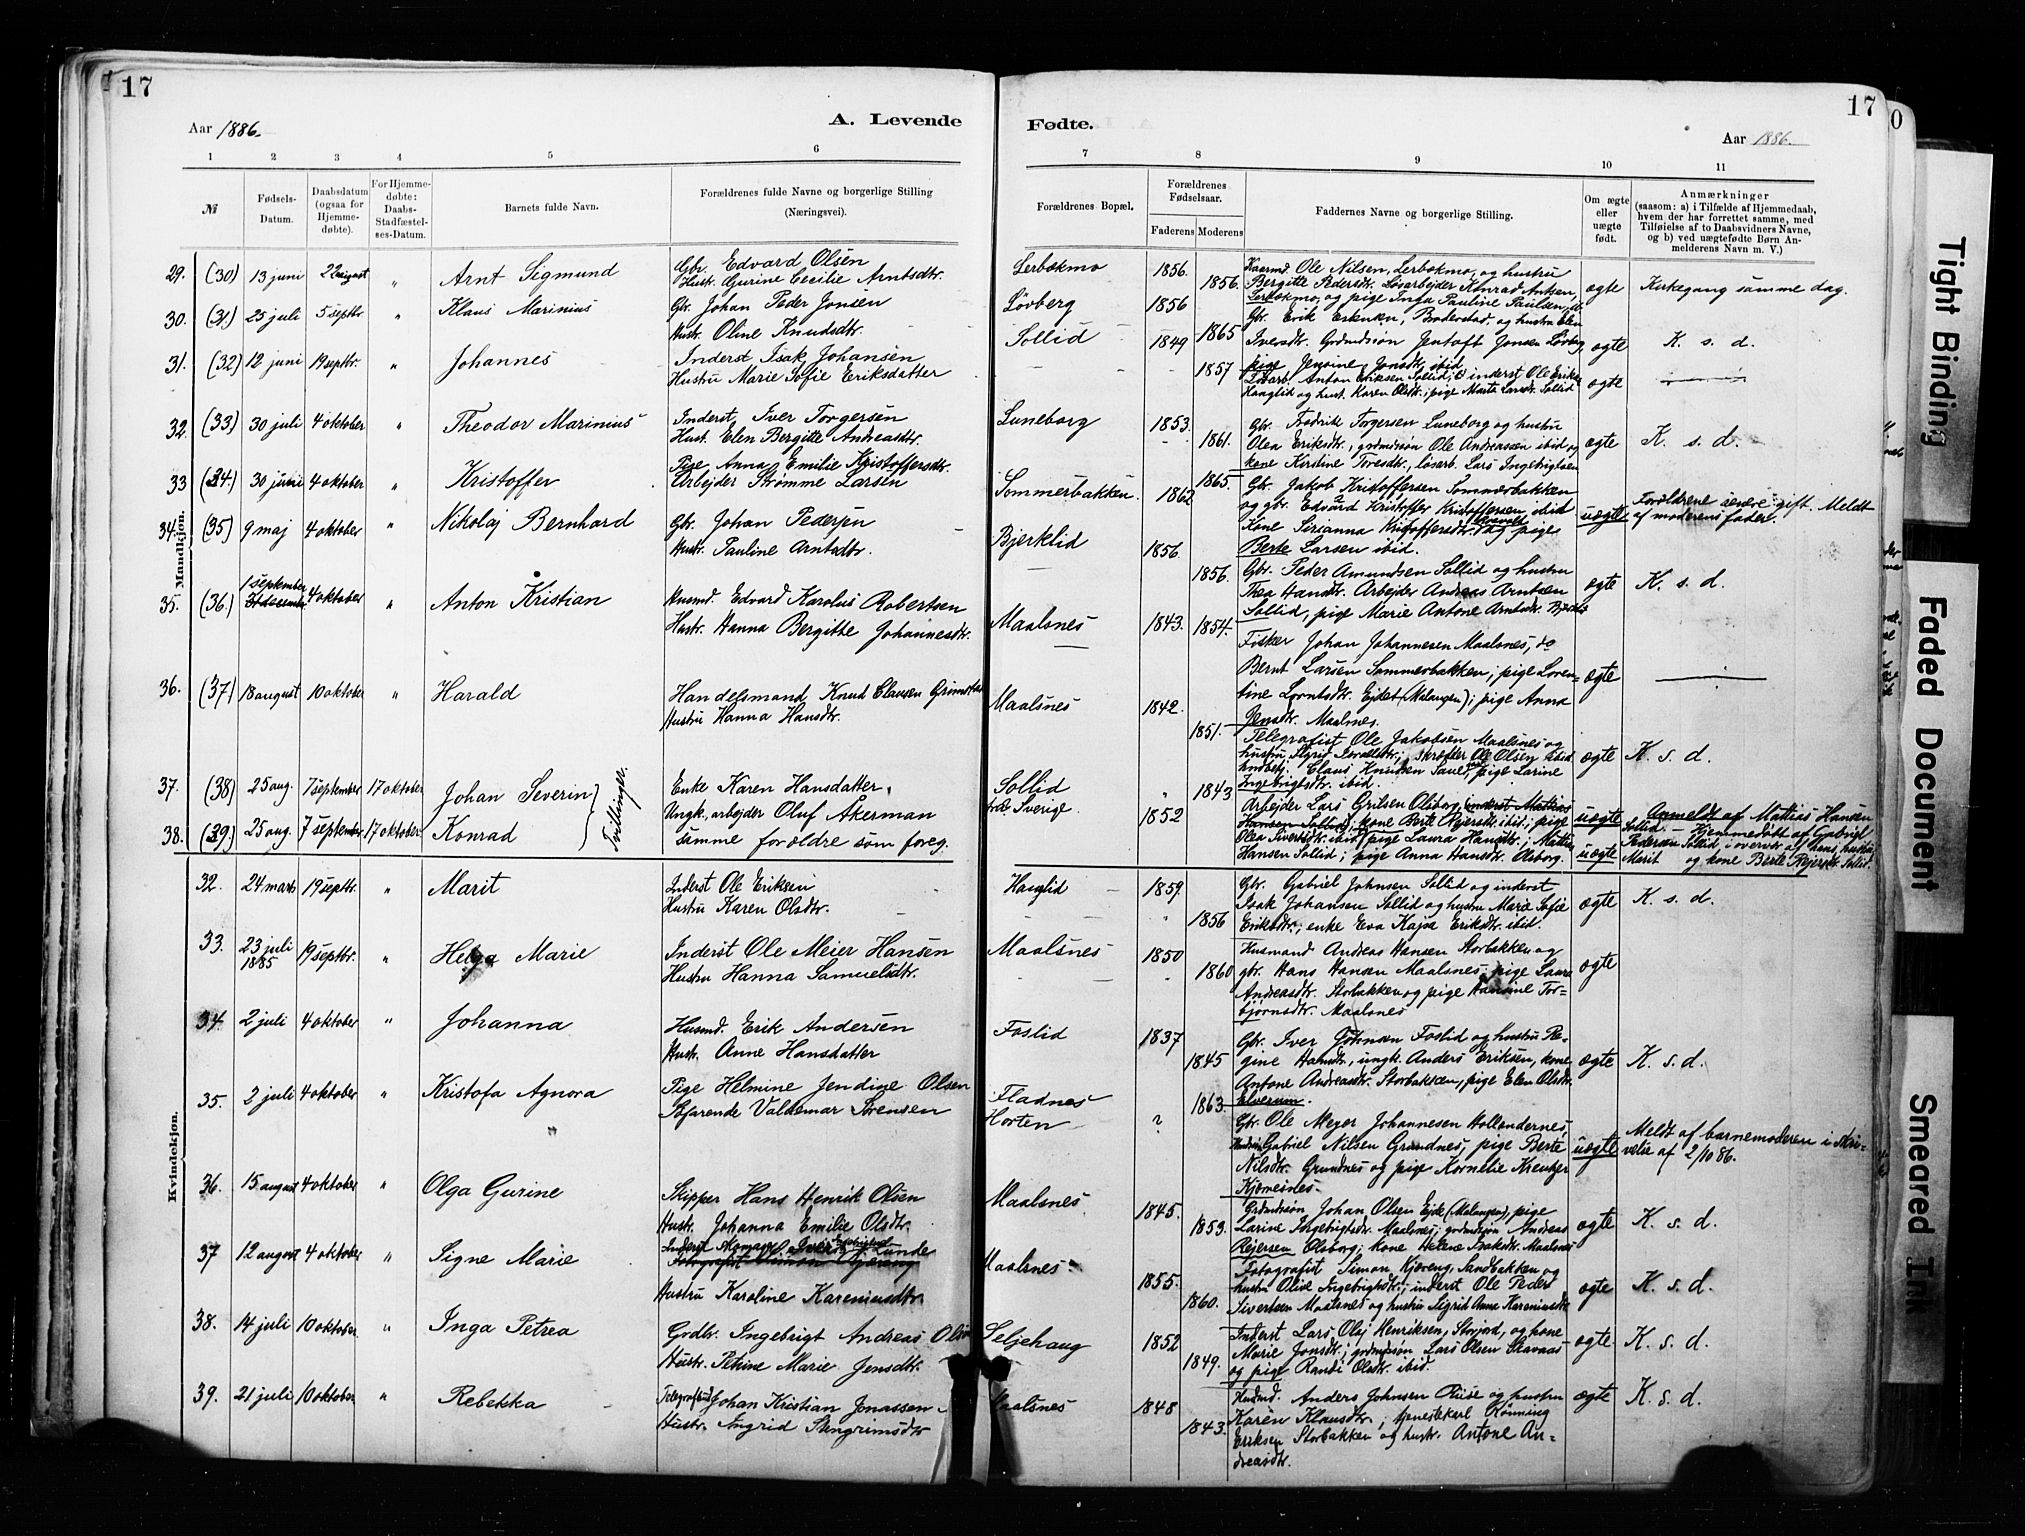 17
Aar 1886.
A. Levende
1 2 3 4 5 6
№
Fødsels-Datum.
Daabsdatum (ogsaa for Hjemmedøbte).
For Hjemmedøbte: Daabs-Stadfæstelses-Datum.
Barnets fulde Navn.
Forældrenes fulde Navne og borgerlige Stilling (Næringsvei).
Mandkjøn.
29. (30) 13 juni 22 august " Arnt Sigmund Gbr. Edvard Olsen
Hustr. Gurine Cecilie Arntsdtr.
30. (31) 25 juli 5 septbr. " Klaus Marinius Gbr. Johan Peder Jonsen
Hustr. Oline Knudsdtr.
31. (32) 12 juni 19 septbr. " Johannes Inderst Isak Johansen
Hustru Marie Sofie Eriksdatter
32. (33) 30 juli 4 oktober " Theodor Marinius Inderst Iver Torgersen
Hust. Elen Bergitte Andreasdtr.
33 (34) 30 juni 4 oktober " Kristoffer Pige Anna Emilie Kristoffersdtr.
Arbejder Strømme Larsen
34. (35) 9 maj 4 oktober " Nikolaj Bernhard Gbr. Johan Pedersen
Hustr. Pauline Arntsdtr.
35. (36.) 1 september 4 oktober " Anton Kristian Husmd. Edvard Karolus Robertsen
Hustr. Hanna Bergitte Johannesdtr.
36. (37) 18 august 10 oktober " Harald Handelsmand Knud Clausen Grimstad
Hustru Hanna Hansdtr.
37. (38) 25 aug. 7 september 17 oktober Johan Severin Enke Karen Hansdatter.
Ungk., arbejder Oluf Åkerman
Tvillinger.
38. (39) 25 aug. 7 september 17 oktober. Konrad samme forældre som foreg.
Kvindekjøn.
32. 24 marts 19 septbr. " Marit Inderst Ole Eriksen
Hustru Karen Olsdtr.
33. 23 juli 1885 19 septbr. " Helga Marie Inderst Ole Meier Hansen
Hustru Hanna Samuelsdtr.
34. 2 juli 4 oktober " Johanna Husmd. Erik Andersen
Hustr. Anne Hansdatter
35. 2 juli 4 oktober " Kristofa Agnora Pige Helmine Jendine Olsen
Søfarende Valdemar Sørensen
36. 15 august 4 oktober " Olga Gurine Skipper Hans Henrik Olsen
Hustr. Johanna Emilie Olsdtr.
37 12 august 4 oktober " Signe Marie Inderst Lunde
Hustru Karoline Kareniusdtr.
38. 14 juli 10 oktober. " Inga Petrea Grdbr. Ingebrigt Andreas Olsen
Hustr. Petrine Marie Jensdtr.
39. 21 juli 10 oktober " Rebekka Johan Kristian Jonassen
Hustr. Ingrid Stengrimsdtr
17
Fødte.
Aar 1886.
7 8 9 10 11
Forældrenes Bopæl.
Forældrenes Fødselsaar.
Faderens Moderens
Faddernes Navne og borgerlige Stilling.
Om ægte eller uægte født.
Anmærkninger
(saasom: a) i Tilfælde af Hjemmedaab,
hvem der har forrettet samme, med
Tilføielse af to Daabsvidners Navne,
og b) ved uægtefødte Børn Anmelderens Navn m. V.)
Lerbokmo 1856. 1856. Ole Nilsen, Lerbokmo, og hustru
Bergitte Pedersdtr. Løsarbejder Konrad Antsen,
Lerbokmo, og pige Inga Pauline Paulsen, ib.
ægte Kirkegang samme dag.
Løvberg 1856 1865 Gbr. Erik Estensen, Broderstad, og hustru Elen
Iversdtr. Grdmdsøn Jentoft Jonsen Løvberg,
pige Jensine Jonsdtr. ibid. ægte K. s. d.
Sollid 1849 1857 Løsarb. Anton Eriksen Sollid; inderst Ole Eriksen
Haaglid og hust. Karen Olsdtr.; pige Marta Sollid
ægte
Luneborg 1853. 1861. Gbr. Fredrik Torgersen Luneborg og hustru
Olea Eriksdtr., grdmdsøn Ole Andreassen ibid og
kone Kirstine Toresdtr., løsarb. Lars Ingebrigtsen
ægte K. s. d.
Sommerbakken. 1862 1865. Gbr. Jakob Kristoffersen Sommerbakken
og gbr. Edvard Kristoffer Kristoffersen, ibid
Kone Sirianna Kristoffersdtr. og pige
Berte Larsen ibid.
uægte Forældrene senere gift. Meldt
af moderens fader.
Bjerklid 1856. 1856. Gbr. Peder Amundsen Sollid og hustru
Thea Hansdtr. Arbejder Andreas Arntsen
Sollid, pige Marie Antone Arntsdtr. Bjerklid
ægte K. s. d.
Maalsnes 1843. 1854. Fisker Johan Johannesen Maalsnes, do
Bernt Larsen Sommerbakken; pige Lorentine Lorntsdtr. Ejdet (Malangen); pige Anna
Jensdtr. Maalsnes.
ægte
Maalsnes 1842. 1851. Telegrafist Ole Jakobsen Maalsnes og
hustru Sigrid; skræder Ole Olsen ibid
Claus Knudsen, pige Larine
Ingebrigtsdtr. ibid.
ægte K. s. d.
Sollid " 1843
Sverige 1852 Arbejder Lars Grilsen Olsborg, inderst Mattias
Hansen Sollid; kone Berte Rejersdtr. ibid.; pige
Olea Sivertsdtr. ibid. pige Laura Hansdtr.; Mattias
Hansen Sollid; pige Anna Hansdtr. Olsborg.
uægte
uægte
Anmeldt af Mattias Hansen
Sollid. — Hjemmedøbt af Gabriel
Pedersen Sollid i overvær af hans hustru
Marit og kone Berte Rejersdtr. Sollid.
Haaglid 1859. 1856 Gbr. Gabriel Johnsen Sollid og inderst
Isak Johansen Sollid og hustru Marie Sofie
Eriksdtr.; enke Eva Kajsa Eriksdtr. ibid.
ægte K. s. d.
Maalsnes 1850 1860 Husmand Andreas Hansen Storbakken og
gbr. Hans Hansen Maalsnes, pige Laura
Andreasdtr. Storbakken og pige Hansine Torbjørnsdtr. Maalsnes
ægte
Foslid 1837 1845 Gbr. Iver Johnsen Foslid og hustru Regine Hansdtr., ungk. Anders Eriksen, kone
Antone Andreasdtr. Storbakken, pige Elen Olsdtr.
Elverum.
ægte K. s. d.
Fladnes 1863.
Horten ? Gbr. Ole Meyer Johannesen Hollendernes,
Gabriel Nilsen Grundnes, pige Berte
Nilsdtr. Grundnes og pige Kornelie Kreutzer
Kjærresnes.
uægte Meldt af barnemoderen i skrivelse af 2/10 86.
Maalsnes. 1845. 1853. Grdmdsøn Johan Olsen Ejde (Malangen), pige
Larine Ingebrigtsdtr. Maalsnes; grdmdsøn Andreas
Rejersen Olsborg; kone Helene Isaksdtr. Maalsnes
ægte K. s. d.
Maalsnes. 1855. 1860. Fotografist Simon Kjæreng, Sandbakken og
hustru Olise Ingebrigtsdtr.; inderst Ole Peder
Sivertsen Maalsnes og hustru Sigrid Anna Kareniusdtr
ægte K. s. d.
Seljehaug 1852 1849. Inderst Lars Olej Henriksen, Storjord, og kone
Marie Jonsdtr.; grdmdsøn Lars Olsen Skavaas
og pige Randi Olsdtr. ibid
ægte K. s. d.
Maalsnes 1848 1843. Husmd. Anders Johnsen Ruse og hustru
Karen Klausdtr.; tjenestekarl Rønning
Eriksen Storbakken og hustr. Antone Andreasdtr.
ægte K. s. d.
Tight Binding
Faded Document
Smeared Ink